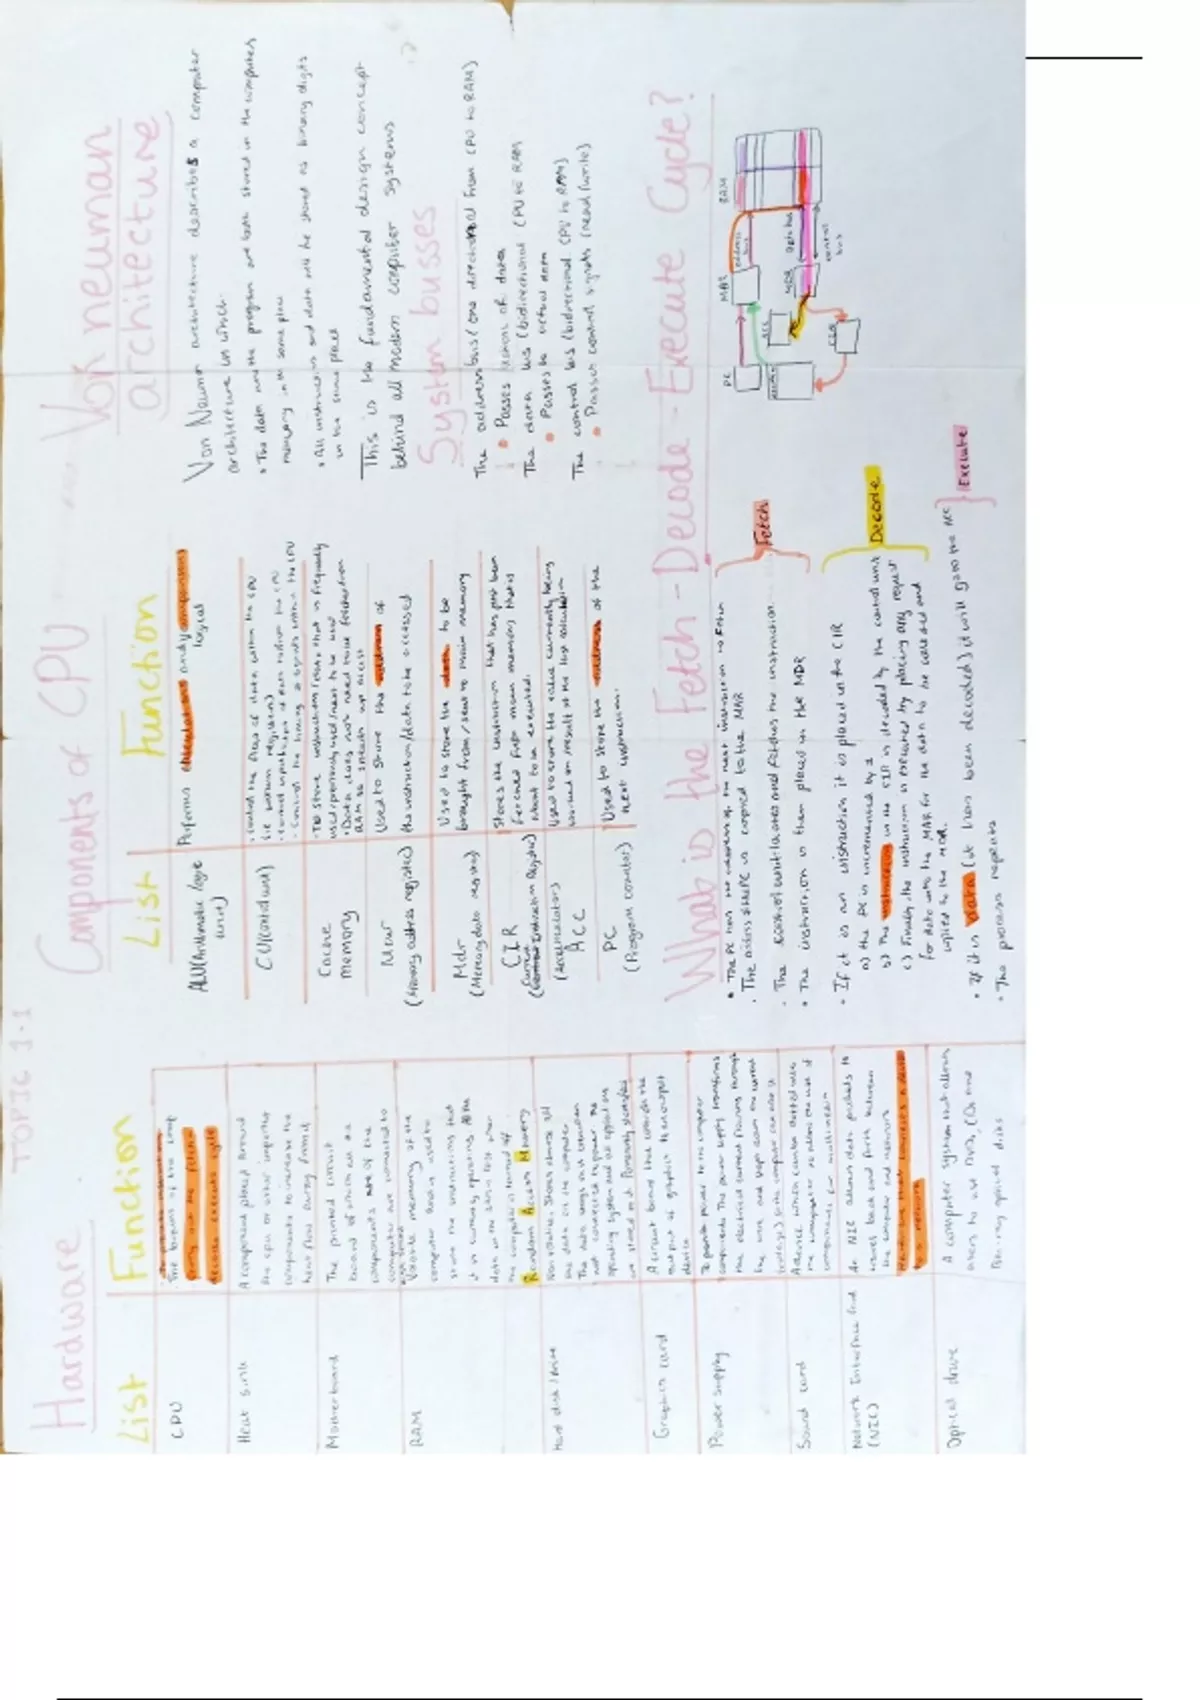 TOPIC 1.1
Hardware
List Function
CPU
The brains of the comp
carry out the fetch
decode execute cycle
Heat sink
A component placed around
the cpu or other important
components to increase the
heat flow away from it
Motherboard
The printed circuit
board of which all the
components of the
computer are connected to
RAM
Volatile memory of the
computer being used to
store the instructions that
it is currently operating
data will be lost when
the computer is turned off
Random Access Memory
Hard disk/drive
Non volatile. Stores almost all
the data in the computer
The data stays even when
not connected to power. The
operating system and all applications
are stored on it. Permanently stored
Graphics card
A circuit board that controls the
output of graphics to an output
device
Power supply
To provide power to the computer
components. The power supply transforms
the electrical current flowing through
the wire and steps down the current
Sound card
A device which can be slotted into
the computer to allow the use of
components for multimedia
Network Interface Card
(NIC)
An NIC allows data packets to
travel back and forth between
the computer and network
Optical drive
A computer system that allows
users to use DVD, CDs and
Blu-ray optical disks
Components of CPU
List Function
ALU(Arithmetic logic
unit)
Performs calculations and comparisons
logical
CU(Control unit)
• Control the flow of data within the CPU
• Control the timing of signals within the CPU
Cache
memory
• To store instructions/data that is frequently
used/previously used/next to be used
• Data does not need to be fetched from
RAM so speeds up access
Mar
(Memory address register)
Used to store the address of
the instruction/data to be accessed
Mdr
(Memory data register)
Used to store the data to be
brought from/sent to main memory
CIR
(Current Instruction Register)
Stores the instruction that has just been
fetched from main memory that is
about to be executed.
(Accumulator)
ACC
Used to store the value currently being
worked on/result of the last calculation
PC
(Program counter)
Used to store the address of the
next instruction.
Von neuman
architecture
Von Neuman architecture describes a computer
architecture in which:
• The data and the program are both stored in the computers
memory in the same place
• All instructions and data will be stored as binary digits
in the same place
This is the fundamental design concept
behind all modern computer systems
System busses
The address bus (one directional from CPU to RAM)
• Passes address of data
The data bus (bidirectional CPU to RAM
• Passes the actual data
The control bus (bidirectional CPU to RAM)
• Passes control signals (read/write)
What is the Fetch - Decode - Execute Cycle?
• The PC has the address of the next instruction to fetch
• The address of the PC is copied to the MAR
• The control unit locates and fetches the instruction
• The instruction is then placed in the MDR
Fetch
• If it is an instruction it is placed in the CIR
a) the PC is incremented by 1
b) The instruction in the CIR is decoded by the control unit
c) Finally, the instruction is executed by placing any request
for data into the MAR for the data to be located and
copied to the MDR.
Decode
• If it is data (it has been decoded) it will go to the ACC
• The process repeats
Execute
PC
MAR
RAM
address
bus
ACC
MDR
data bus
control
bus
CIR